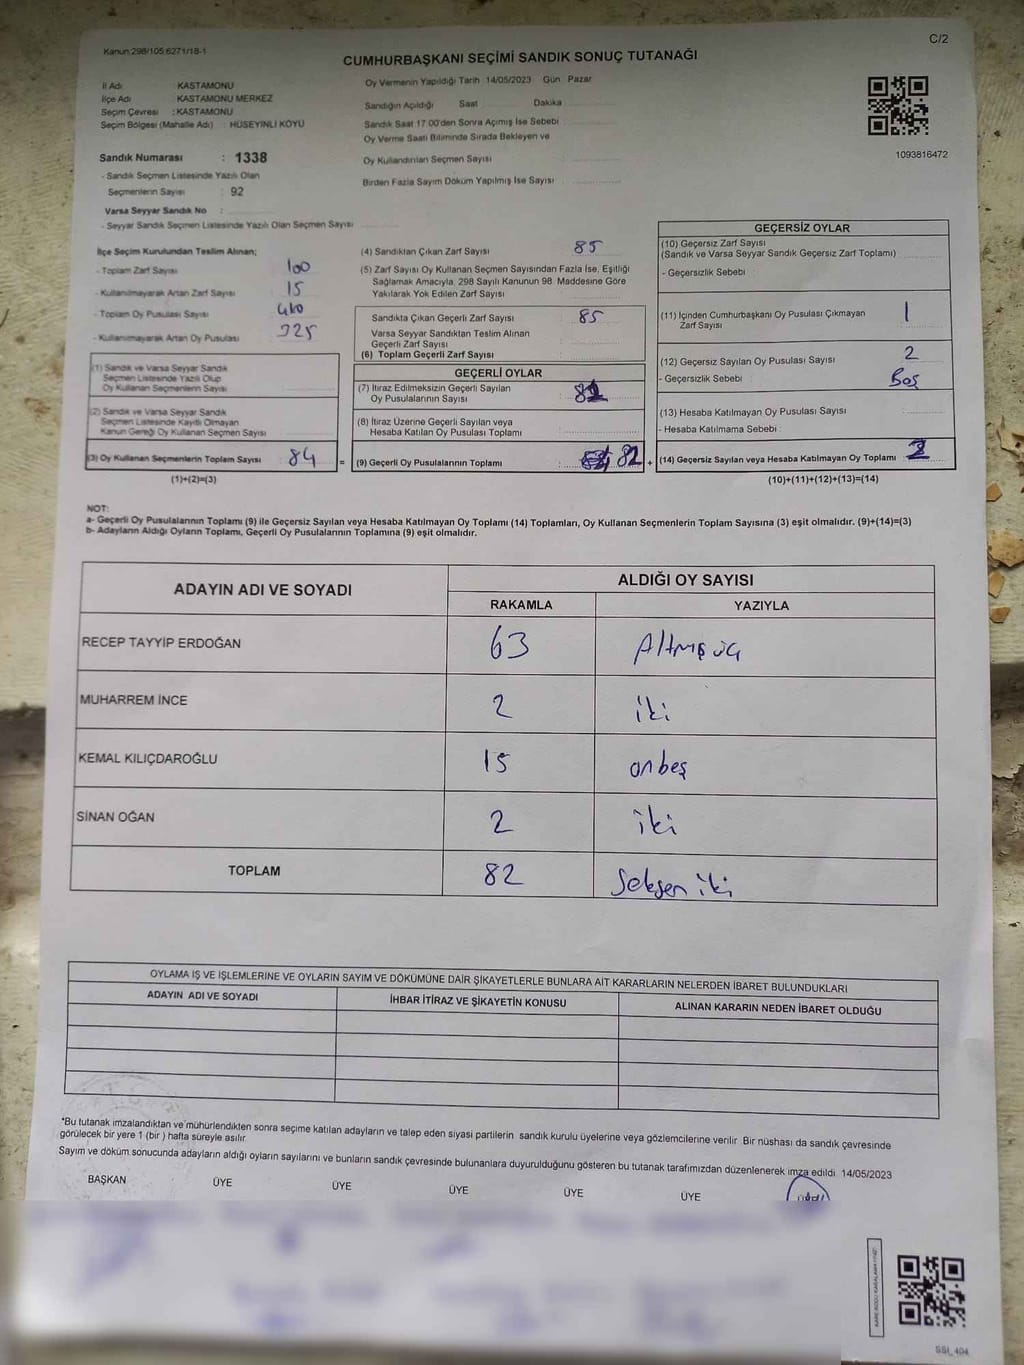 Kanun:298/105:6271/18-1
C/2
CUMHURBAŞKANI SEÇİMİ SANDIK SONUÇ TUTANAĞI
İl Adı : KASTAMONU
İlçe Adı : KASTAMONU MERKEZ
Seçim Çevresi : KASTAMONU
Seçim Bölgesi (Mahalle Adı) : HÜSEYİNLİ KÖYÜ
Sandık Numarası : 1338
- Sandık Seçmen Listesinde Yazılı Olan
Seçmenlerin Sayısı : 92
Varsa Seyyar Sandık No :
- Seyyar Sandık Seçmen Listesinde Yazılı Olan Seçmen Sayısı
Oy Vermenin Yapıldığı Tarih 14/05/2023 Gün Pazar
Sandığın Açıldığı Saat Dakika
Sandık Saat 17:00'den Sonra Açımış İse Sebebi
Oy Verme Saati Bitiminde Sırada Bekleyen ve
Oy Kullandırılan Seçmen Sayısı
Birden Fazla Sayım Döküm Yapılmış İse Sayısı
1093816472
İlçe Seçim Kurulundan Teslim Alınan;
- Toplam Zarf Sayısı 100
- Kullanılmayarak Artan Zarf Sayısı 15
- Toplam Oy Pusulası Sayısı 410
- Kullanılmayarak Artan Oy Pusulası 325
(1) Sandık ve Varsa Seyyar Sandık
Seçmen Listesinde Yazılı Olup
Oy Kullanan Seçmenlerin Sayısı
(2) Sandık ve Varsa Seyyar Sandık
Seçmen Listesinde Kayıtlı Olmayan
Kanun Gereği Oy Kullanan Seçmen Sayısı
(3) Oy Kullanan Seçmenlerin Toplam Sayısı : 84 =
(1)+(2)=(3)
(4) Sandıktan Çıkan Zarf Sayısı 85
(5) Zarf Sayısı Oy Kullanan Seçmen Sayısından Fazla İse, Eşitliği
Sağlamak Amacıyla, 298 Sayılı Kanunun 98. Maddesine Göre
Yakılarak Yok Edilen Zarf Sayısı
Sandıkta Çıkan Geçerli Zarf Sayısı : 85
Varsa Seyyar Sandıktan Teslim Alınan
Geçerli Zarf Sayısı
(6) Toplam Geçerli Zarf Sayısı
GEÇERLİ OYLAR
(7) İtiraz Edilmeksizin Geçerli Sayılan
Oy Pusulalarının Sayısı
(8) İtiraz Üzerine Geçerli Sayılan veya
Hesaba Katılan Oy Pusulası Toplamı
(9) Geçerli Oy Pusulalarının Toplamı : 82 +
GEÇERSİZ OYLAR
(10) Geçersiz Zarf Sayısı
(Sandık ve Varsa Seyyar Sandık Geçersiz Zarf Toplamı)
- Geçersizlik Sebebi :
(11) İçinden Cumhurbaşkanı Oy Pusulası Çıkmayan
Zarf Sayısı 1
(12) Geçersiz Sayılan Oy Pusulası Sayısı 2
- Geçersizlik Sebebi : Boş
(13) Hesaba Katılmayan Oy Pusulası Sayısı
- Hesaba Katılmama Sebebi :
(14) Geçersiz Sayılan veya Hesaba Katılmayan Oy Toplamı
(10)+(11)+(12)+(13)=(14)
NOT:
a- Geçerli Oy Pusulalarının Toplamı (9) ile Geçersiz Sayılan veya Hesaba Katılmayan Oy Toplamı (14) Toplamları, Oy Kullanan Seçmenlerin Toplam Sayısına (3) eşit olmalıdır. (9)+(14)=(3)
b- Adayların Aldığı Oyların Toplamı, Geçerli Oy Pusulalarının Toplamına (9) eşit olmalıdır.
ADAYIN ADI VE SOYADI
ALDIĞI OY SAYISI
RAKAMLA YAZIYLA
RECEP TAYYİP ERDOĞAN 63 Altmışüç
MUHARREM İNCE 2 iki
KEMAL KILIÇDAROĞLU 15 onbeş
SİNAN OĞAN 2 iki
TOPLAM 82 Seksen iki
OYLAMA İŞ VE İŞLEMLERİNE VE OYLARIN SAYIM VE DÖKÜMÜNE DAİR ŞİKAYETLERLE BUNLARA AİT KARARLARIN NELERDEN İBARET BULUNDUKLARI
ADAYIN ADI VE SOYADI İHBAR İTİRAZ VE ŞİKAYETİN KONUSU ALINAN KARARIN NEDEN İBARET OLDUĞU
*Bu tutanak imzalandıktan ve mühürlendikten sonra seçime katılan adayların ve talep eden siyasi partilerin sandık kurulu üyelerine veya gözlemcilerine verilir. Bir nüshası da sandık çevresinde
görülecek bir yere 1 (bir) hafta süreyle asılır.
Sayım ve döküm sonucunda adayların aldığı oyların sayılarını ve bunların sandık çevresinde bulunanlara duyurulduğunu gösteren bu tutanak tarafımızdan düzenlenerek imza edildi. 14/05/2023
BAŞKAN ÜYE ÜYE ÜYE ÜYE ÜYE
SSI_404